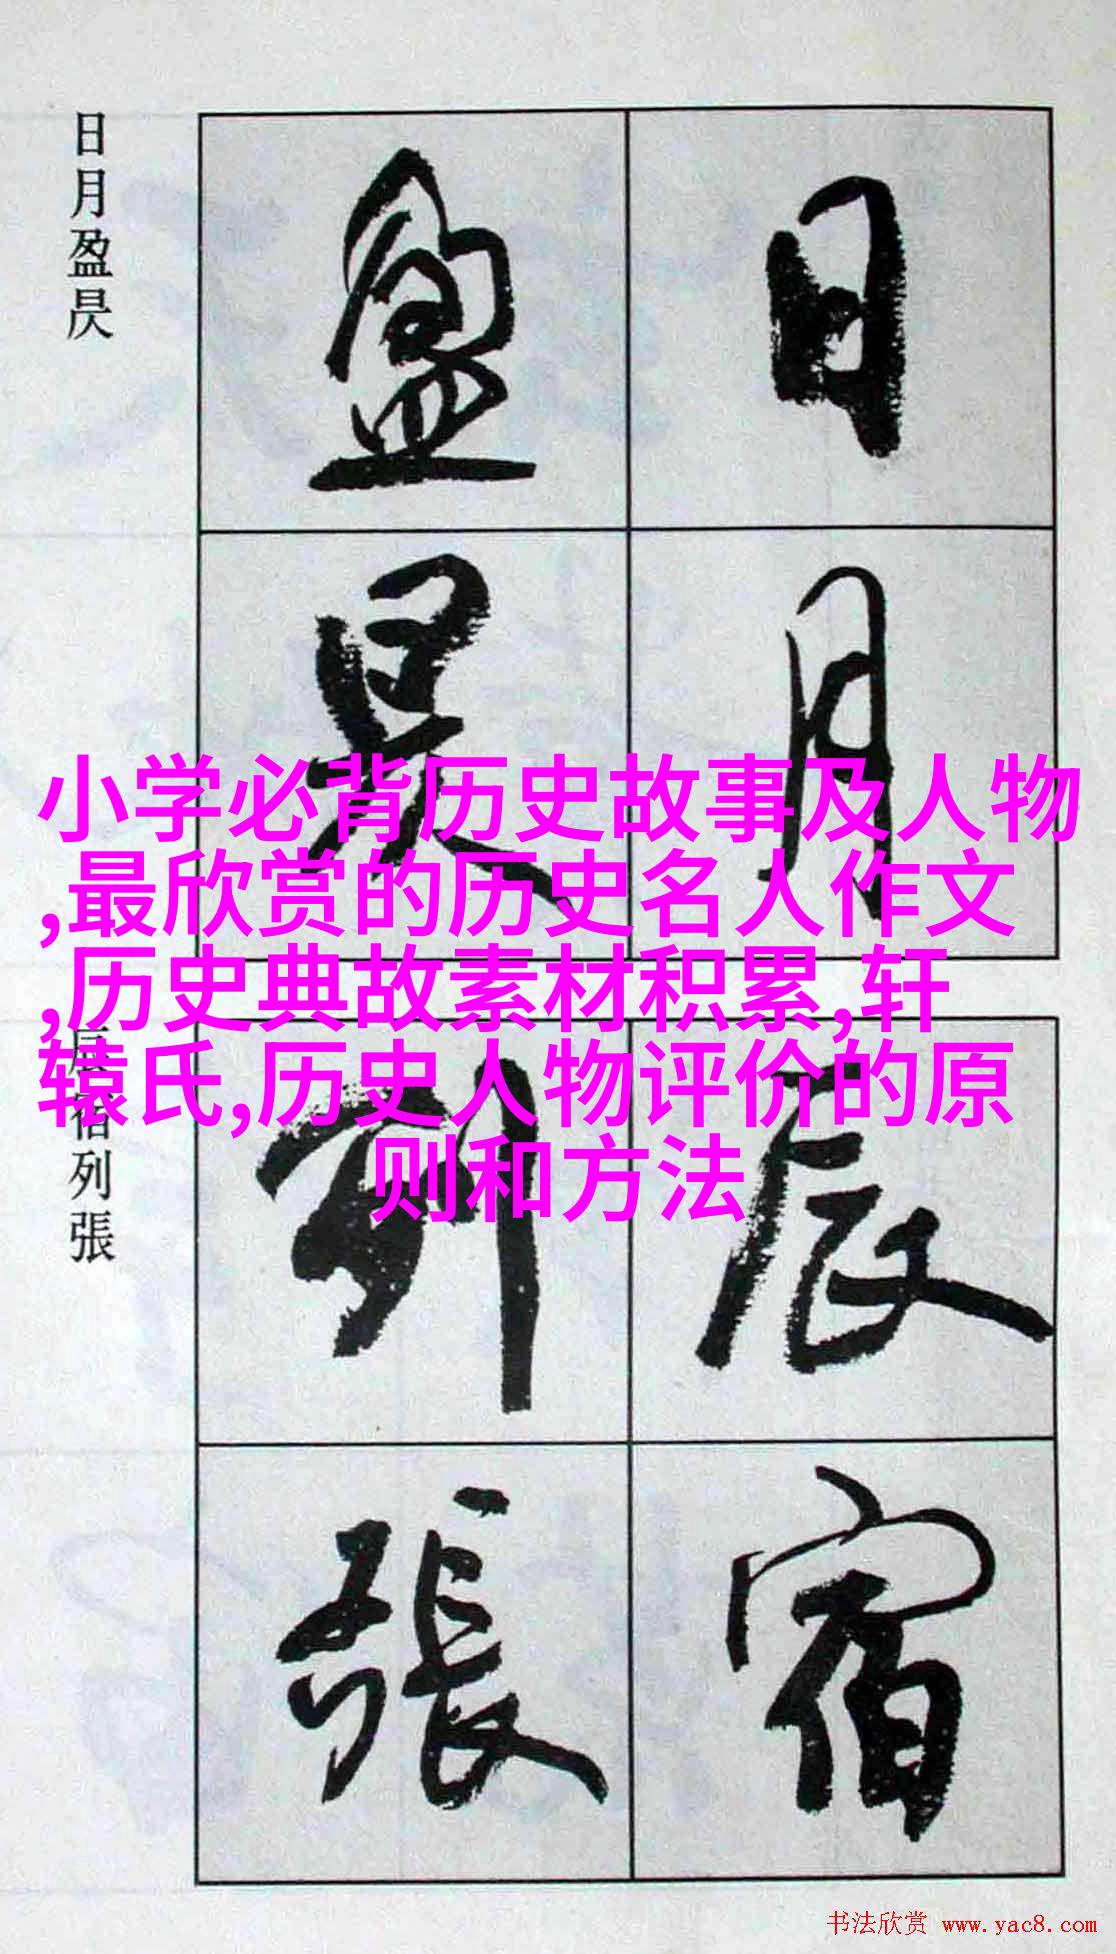 日月盈昃
日月
盈昃
小学必背历史故事及人物
,最欣赏的历史名人作文
,历史典故素材积累,轩
辕氏,历史人物评价的原
则和方法
辰宿列張
辰宿
列張
书法欣赏 www.yac8.com